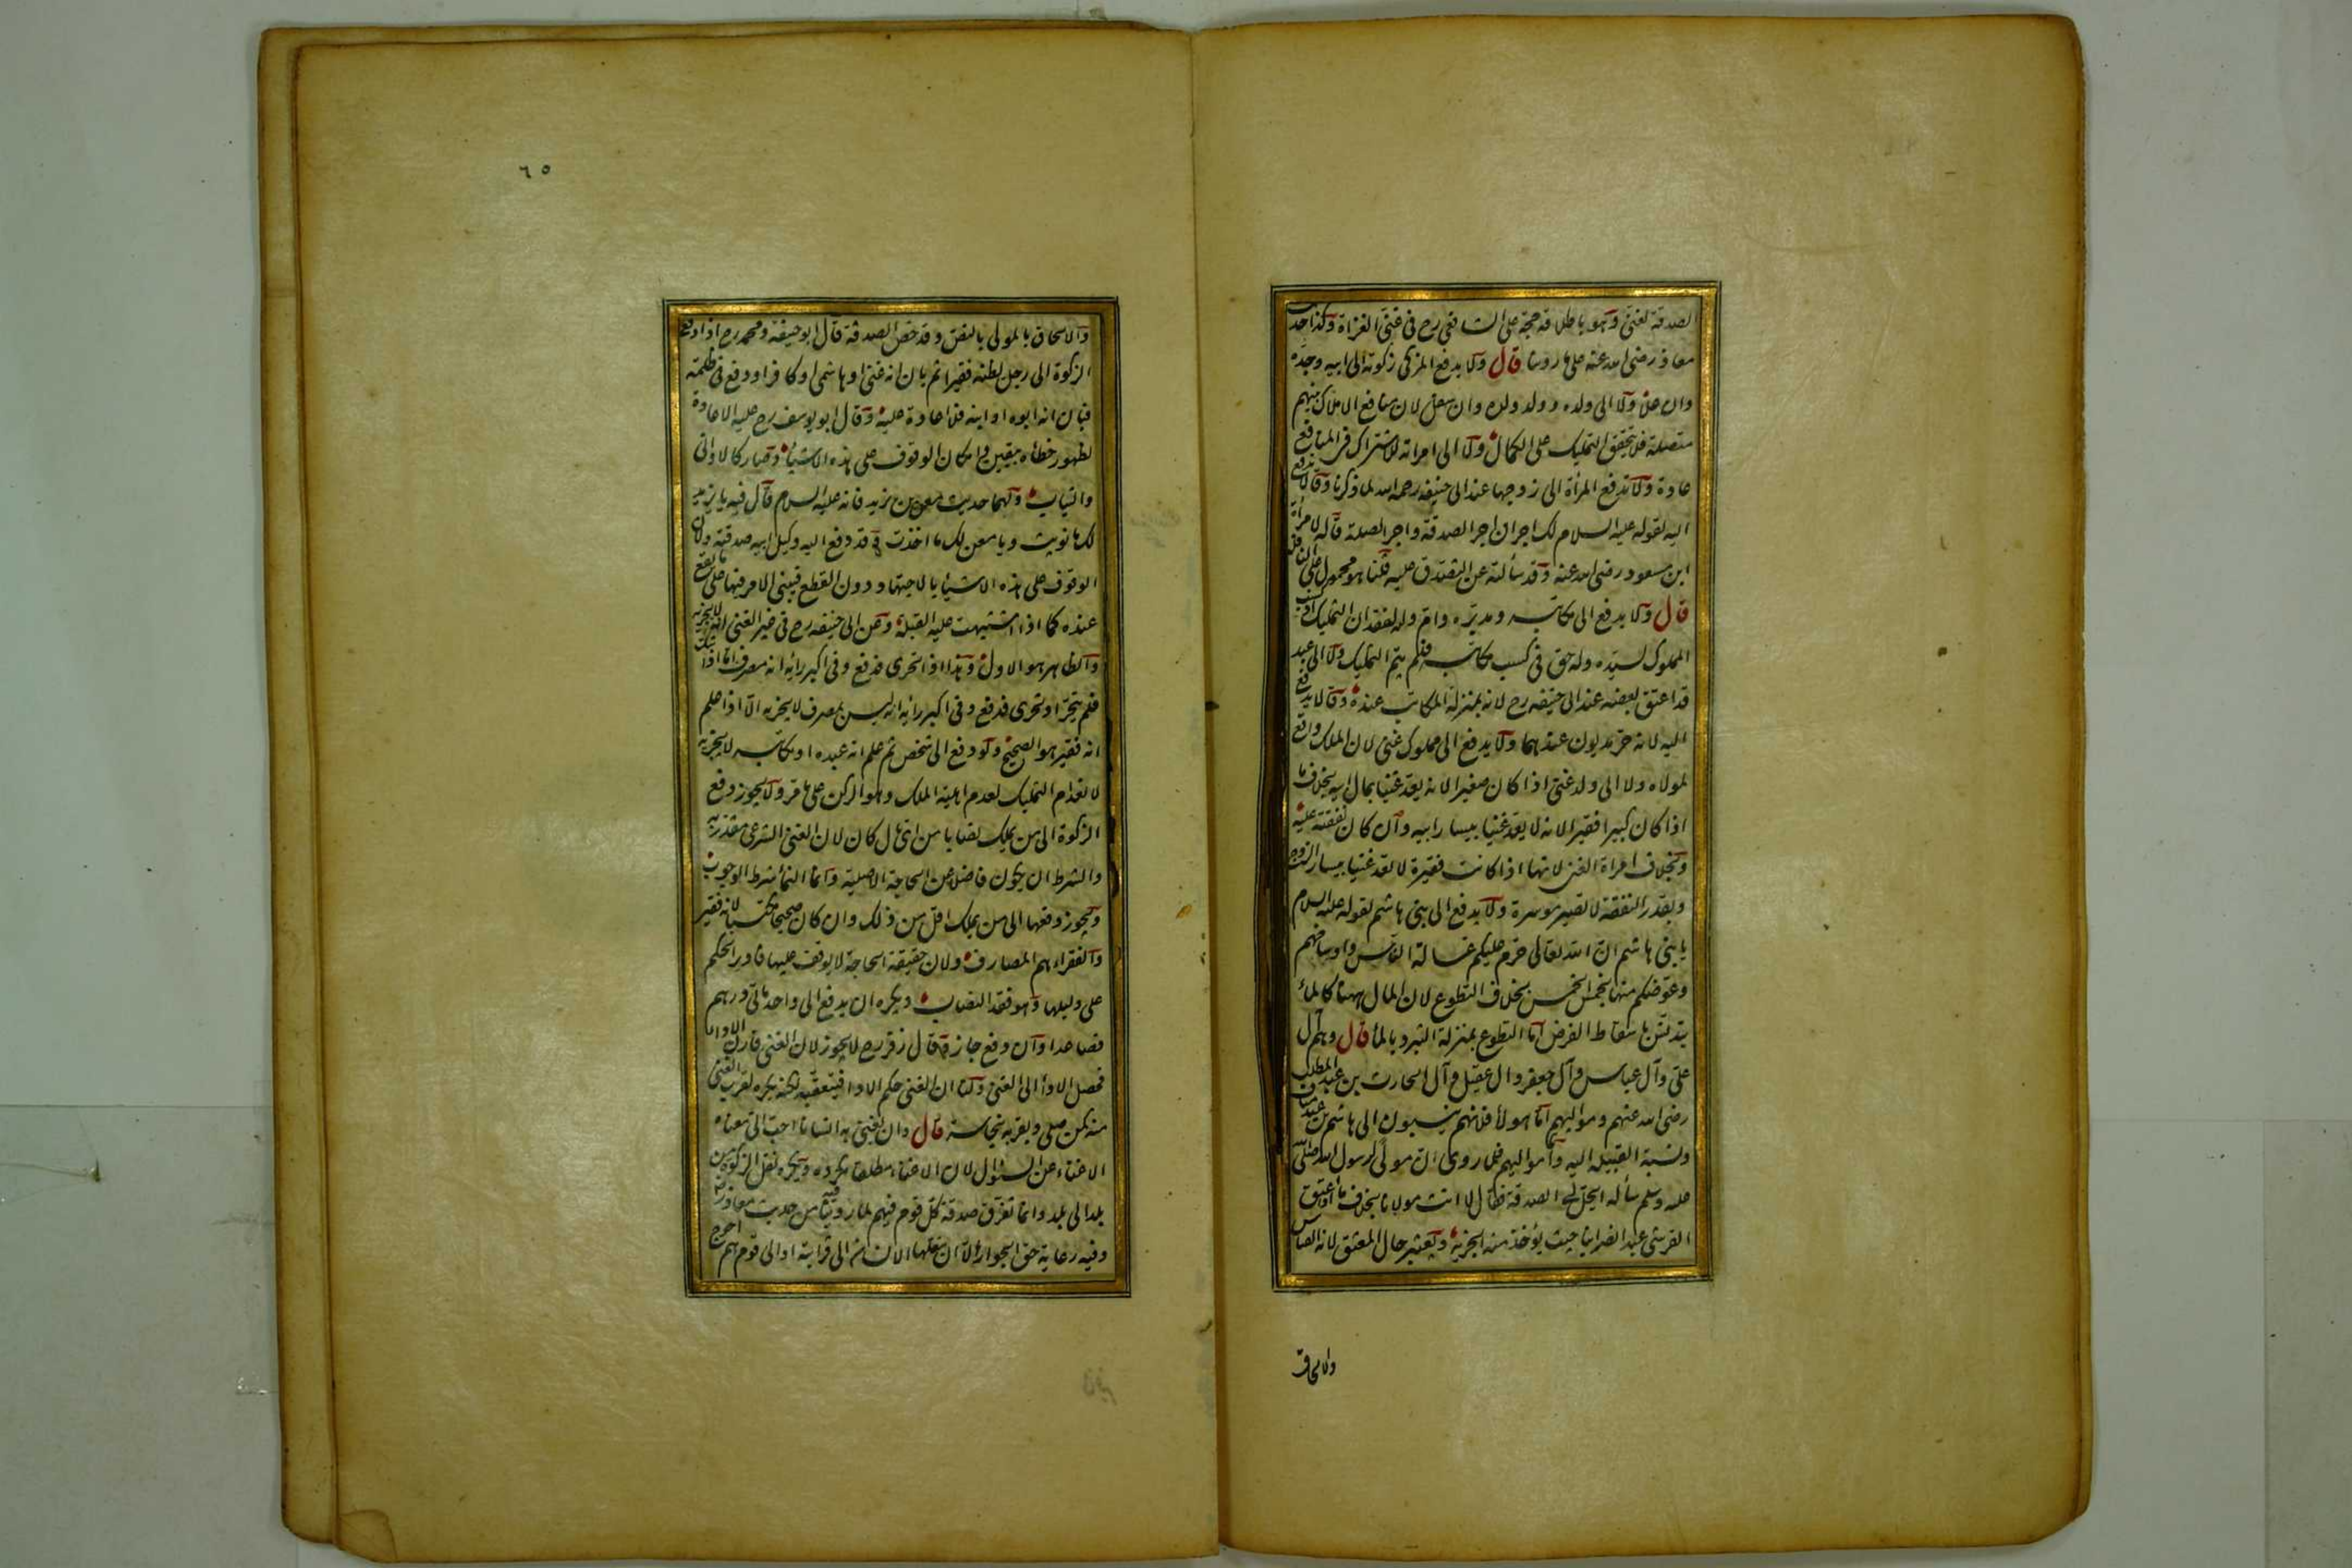 الصدقة لغني وهو باطلاقه حجة على الشافعي رح في غني الغزاة وكذا حديث
معاذ رضي الله عنه على ما روينا قال ولا يدفع المزكي زكوته الى ابيه وجده
وان علا ولا الى ولده وولد ولده وان سفل لان منافع الاملاك بينهم
متصلة فلا يتحقق التمليك على الكمال ولا الى امراته للاشتراك في المنافع
عادة ولا تدفع المرأة الى زوجها عند ابي حنيفة رحمه الله لما ذكرنا وقالا تدفع
اليه لقوله عليه السلام لك اجران اجر الصدقة واجر الصلة قاله لامرأة
ابن مسعود رضي الله عنه وقد سألته عن التصدق عليه قلنا هو محمول على النافلة
قال ولا يدفع الى مكاتبه ومدبره وام ولده لفقدان التمليك اذ كسب
المملوك لسيده وله حق في كسب مكاتبه فلم يتم التمليك ولا الى عبد
قد اعتق بعضه عند ابي حنيفة رح لانه بمنزلة المكاتب عنده وقالا يدفع
اليه لانه حر مديون عندهما ولا يدفع الى مملوك غني لان الملك واقع
لمولاه ولا الى ولد غني اذا كان صغيرا لانه يعد غنيا بمال ابيه بخلاف ما
اذا كان كبيرا فقيرا لانه لا يعد غنيا بيسار ابيه وان كان نفقته عليه
وبخلاف امراة الغني لانها اذا كانت فقيرة لا تعد غنيا بيسار الزوج
وبقدر النفقة لا تصير موسرة ولا يدفع الى بني هاشم لقوله عليه السلام
يا بني هاشم ان الله تعالى حرم عليكم غسالة الناس واوساخهم
وعوضكم منها بخمس الخمس بخلاف التطوع لان المال ههنا كالماء
يتدنس باسقاط الفرض اما التطوع بمنزلة التبرد بالماء قال وهم آل
علي وآل عباس وآل جعفر وآل عقيل وآل الحارث بن عبد المطلب
رضي الله عنهم ومواليهم اما هولاء فلانهم ينسبون الى هاشم بن عبد مناف
ونسبة القبيلة اليه واما مواليهم فلما روى ان مولى لرسول الله صلى الله
عليه وسلم سأله اتحل لي الصدقة فقال لا انت مولانا بخلاف ما اذا اعتق
القرشي عبدا نصرانيا حيث يؤخذ منه الجزية ويعتبر حال المعتق لانه القياس
والالحاق
٦٥
والالحاق بالمولى بالنص وقد خص الصدقة قال ابو حنيفة ومحمد رح اذا دفع
الزكوة الى رجل يظنه فقيرا ثم بان انه غني او هاشمي او كافر او دفع في ظلمة
فبان انه ابوه او ابنه فلا اعادة عليه وقال ابو يوسف رح عليه الاعادة
لظهور خطائه بيقين وامكان الوقوف على هذه الاشياء وصار كالاواني
والثياب ولهما حديث معن بن يزيد فانه عليه السلام قال فيه يا يزيد
لك ما نويت ويا معن لك ما اخذت وقد دفع اليه وكيل ابيه صدقته ولان
الوقوف على هذه الاشياء بالاجتهاد دون القطع فيبنى الامر فيها على ما يقع
عنده كما اذا اشتبهت عليه القبلة وعن ابي حنيفة رح في غير الغني انه لا يجزيه
والظاهر هو الاول وهذا اذا تحرى فدفع وفي اكبر رائه انه مصرف اما اذا شك
فلم يتحر او تحرى فدفع وفي اكبر رائه انه ليس بمصرف لا يجزيه الا اذا علم
انه فقير هو الصحيح ولو دفع الى شخص ثم علم انه عبده او مكاتبه لا يجزيه
لانعدام التمليك لعدم اهلية الملك وهو الركن على ما مر ولا يجوز دفع
الزكوة الى من يملك نصابا من اي مال كان لان الغنى الشرعي مقدر به
والشرط ان يكون فاضلا عن الحاجة الاصلية وانما النماء شرط الوجوب
ويجوز دفعها الى من يملك اقل من ذلك وان كان صحيحا مكتسبا لانه فقير
والفقراء هم المصارف ولان حقيقة الحاجة لا يوقف عليها فادير الحكم
على دليلها وهو فقد النصاب ويكره ان يدفع الى واحد مأتي درهم
فصاعدا وان دفع جاز وقال زفر رح لا يجوز لان الغنى قارن الاداء
فحصل الاداء الى الغني ولنا ان الغنى حكم الاداء فيتعقبه لكنه يكره لقرب الغنى
منه كمن صلى وبقربه نجاسة قال وان يغني به انسانا احب الي معناه
الاغناء عن السؤال لان الاغناء مطلقا مكروه ويكره نقل الزكوة من
بلد الى بلد وانما تفرق صدقة كل قوم فيهم لما روينا من حديث معاذ رض
وفيه رعاية حق الجوار الا ان ينقلها الانسان الى قرابته او الى قوم هم احوج